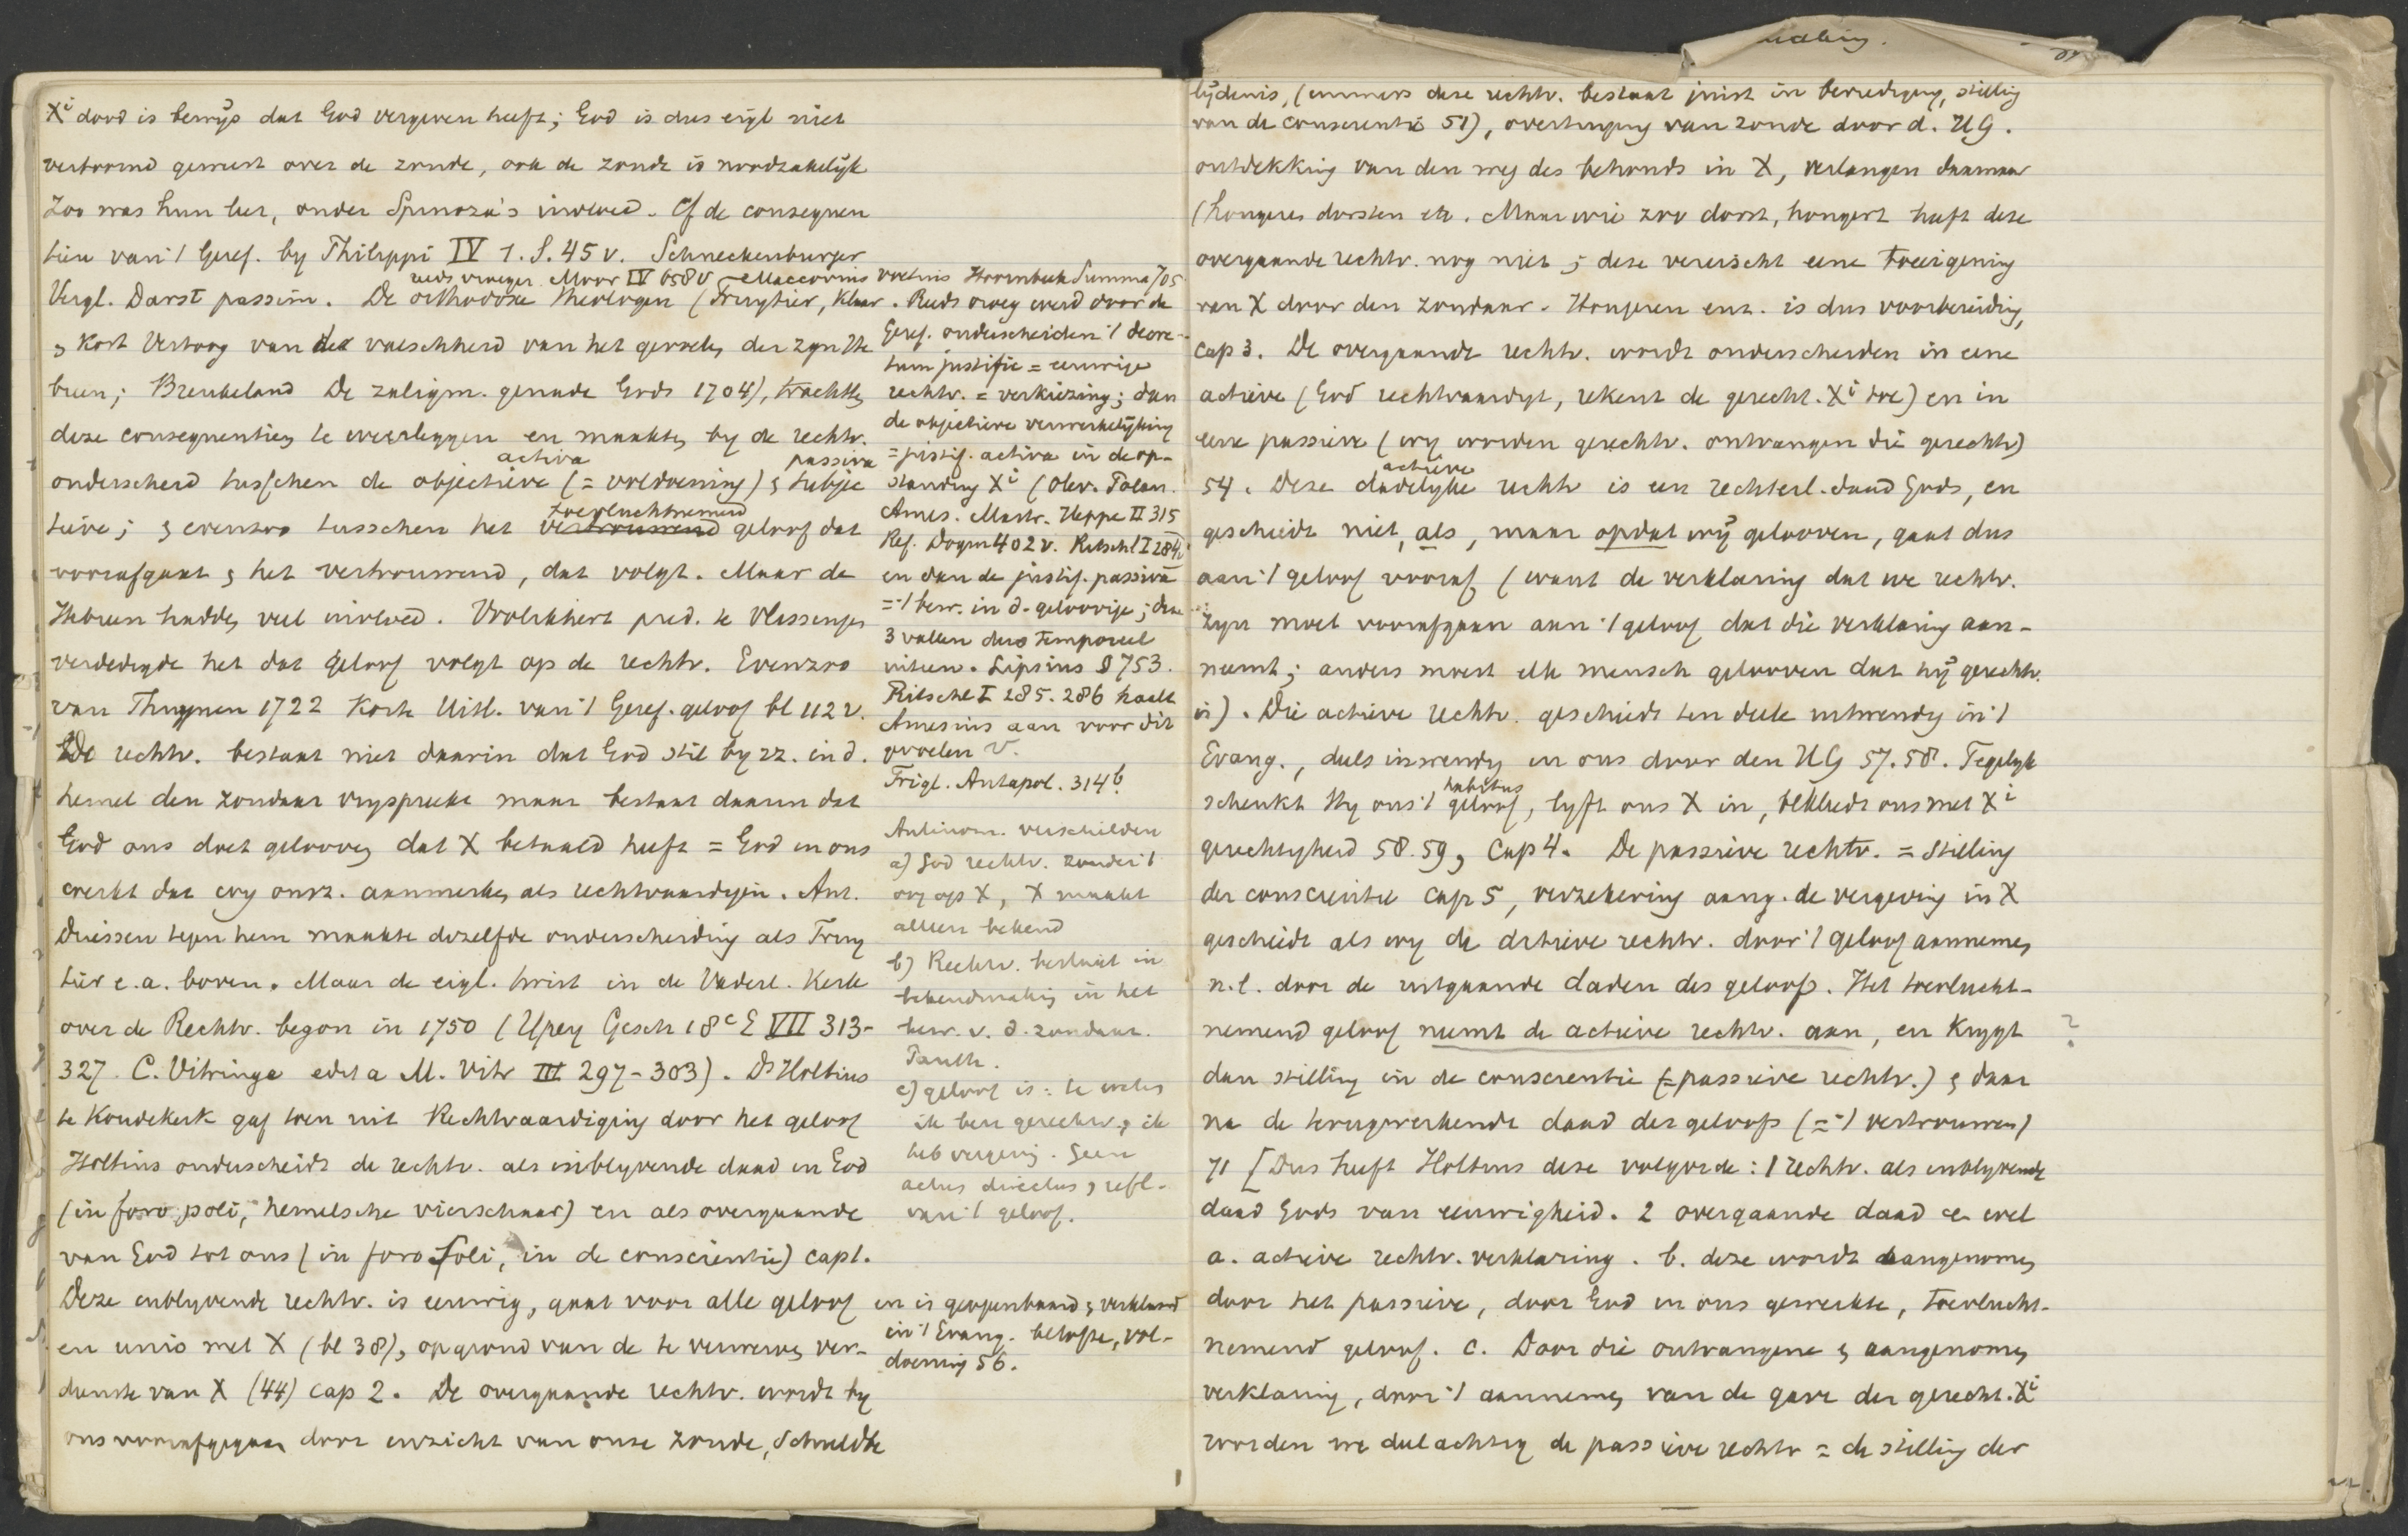 Xi dood is bewijs dat God vergeven heeft; God is dus eigl niet
vertoornd geweest over de zonde, ook de zonde is noodzakelijk
Zoo was hun leer, onder Spinoza's invloed. Cf de consequen
tiën van 't Geref. by Philippi IV 1. S. 45 v. Schneckenburger
reeds vroeger Moor IV 658v Maccovius
Vergl. Darst passim. De orthodoxe theologen (Fruytier, Klaar
& Kort Vertoog van de valschheid van het gevoelen der zgn He
breen; Breukeland De zaligm. genade Gods 1704), trachtten
deze consequentiën te weerleggen en maakten by de rechtv.
activa passiva
onderscheid tusschen de objectieve (= voldoening) & subjec
toevluchtnemend
tieve; & evenzoo tusschen het vertrouwend geloof dat
voorafgaat & het vertrouwend, dat volgt. Maar de
Hebreen hadden veel invloed. Vrolikhert pred. te Vlissingen
verdedigde het dat geloof volgt op de rechtv. Evenzoo
van Thuynen 1722 Korte Uitl. van 't Geref. geloof bl 112 v.
De rechtv. bestaat niet daarin dat God stil by zz. in d.
hemel den zondaar vryspreekt maar bestaat daarin dat
God ons doet gelooven dat X betaald heeft = God in ons
werkt dat wy onsz. aanmerken als rechtvaardigen. Ant.
Driessen tegen hem maakte dezelfde onderscheiding als Fruy
tier e.a. boven. Maar de eigl. twist in de Vaderl. Kerk
over de Rechtv. begon in 1750 (Ypey Gesch 18e E VII 313-
327. C. Vitringa edit a M. Vitr III 297-303). Ds Holtius
te Koudekerk gaf toen uit Rechtvaardiging door het geloof
Holtius onderscheidt de rechtv. als inblyvende daad in God
(in foro poli, hemelsche vierschaar) en als overgaande
van God tot ons (in foro soli, in de conscientie) cap 1.
Deze inblyvende rechtv. is eeuwig, gaat voor alle geloof
en unio met X (bl 38), op grond van de te verwerven ver-
dienste van X (44) cap 2. De overgaande rechtv. wordt by
ons voorafgegaan door inzicht van onze zonde, schuldbe
Voetius Hoornbeek Summa 705
. Reeds vroeg werd door de
Geref. onderscheiden 't decre-
tum justific = eeuwige
rechtv. = verkiezing; dan
de objectieve verwerkelyking
= justif. activa in de op-
standing Xi (Olev. Polan.
Ames. Mastr. Heppe II 315
Ref. Dogm 402 v. Ritschl I 284)
en dan de justif. passiva
= 't bew. in d. geloovige; deze
3 vallen dus temporeel
uiteen. Lipsius § 753.
Ritschl I 285. 286 haalt
Amesius aan voor dit
gevoelen
Trigl. Antapol. 314b
Antinom. verschilden
a) God rechtv. zonder 't
oog op X, X maakt
alleen bekend
b) Rechtv. bestaat in
bekendmaking in het
bew. v. d. zondaar.
c) geloof is: te weten
ik ben gerechtv. & ik
heb vergeving. Geen
actus directus & refl.
van 't geloof.
en is geopenbaard & verklaard
in 't Evang. belofte, vol-
doening 56.
lydenis, (immers deze rechtv. bestaat juist in bevrediging, stilling
van de conscientie 51), overtuiging van zonde door d. HG.
ontdekking van den weg des behouds in X, verlangen daarnaar
(hongeren dorsten etc. Maar wie zoo dorst, hongert heeft deze
overgaande rechtv. nog niet; deze vereischt eene toeeigening
van X door den zondaar. Hongeren enz. is dus voorbereiding,
cap 3. De overgaande rechtv. wordt onderscheiden in eene
actieve (God rechtvaardigt, rekent de gerecht. Xi toe) en in
eene passieve (wy worden gerechtv. ontvangen die gerechtv)
actieve
54. Deze dadelyke rechtv is een rechterl. daad Gods, en
geschiedt niet, als, maar opdat wij gelooven, gaat dus
aan 't geloof vooraf (want de verklaring dat we rechtv.
zyn moet voorafgaan aan 't geloof dat die verklaring aan-
neemt; anders moest elk mensch gelooven dat hij gerechtv.
is). Die actieve rechtv. geschiedt ten deele uitwendig in 't
Evang., deels inwendig in ons door den HG 57. 58. Tegelyk
habitus
schenkt Hy ons 't geloof, lyft ons X in, bekleedt ons met Xi
gerechtigheid 58. 59, cap 4. De passieve rechtv. = stilling
der conscientie cap 5, verzekering aang. de vergeving in X
geschiedt als wy de actieve rechtv. door 't geloof aannemen
n.l. door de uitgaande daden des geloofs. Het toevlucht-
nemend geloof neemt de actieve rechtv. aan, en krygt ?
dan stilling in de conscientie (= passieve rechtv.) & daar
na de terugwerkende daad des geloofs (= 't vertrouwen)
71 [Dus heeft Holtius deze volgorde: 1 rechtv. als inblyvende
daad Gods van eeuwigheid. 2 overgaande daad & wel
a. actieve rechtv. verklaring. b. deze wordt aangenomen
door het passieve, door God in ons gewerkte, toevlucht-
nemend geloof. c. Door die ontvangene & aangenomen
verklaring, door 't aannemen van de gave der gerecht. Xi
worden we deelachtig de passieve rechtv = de stilling der